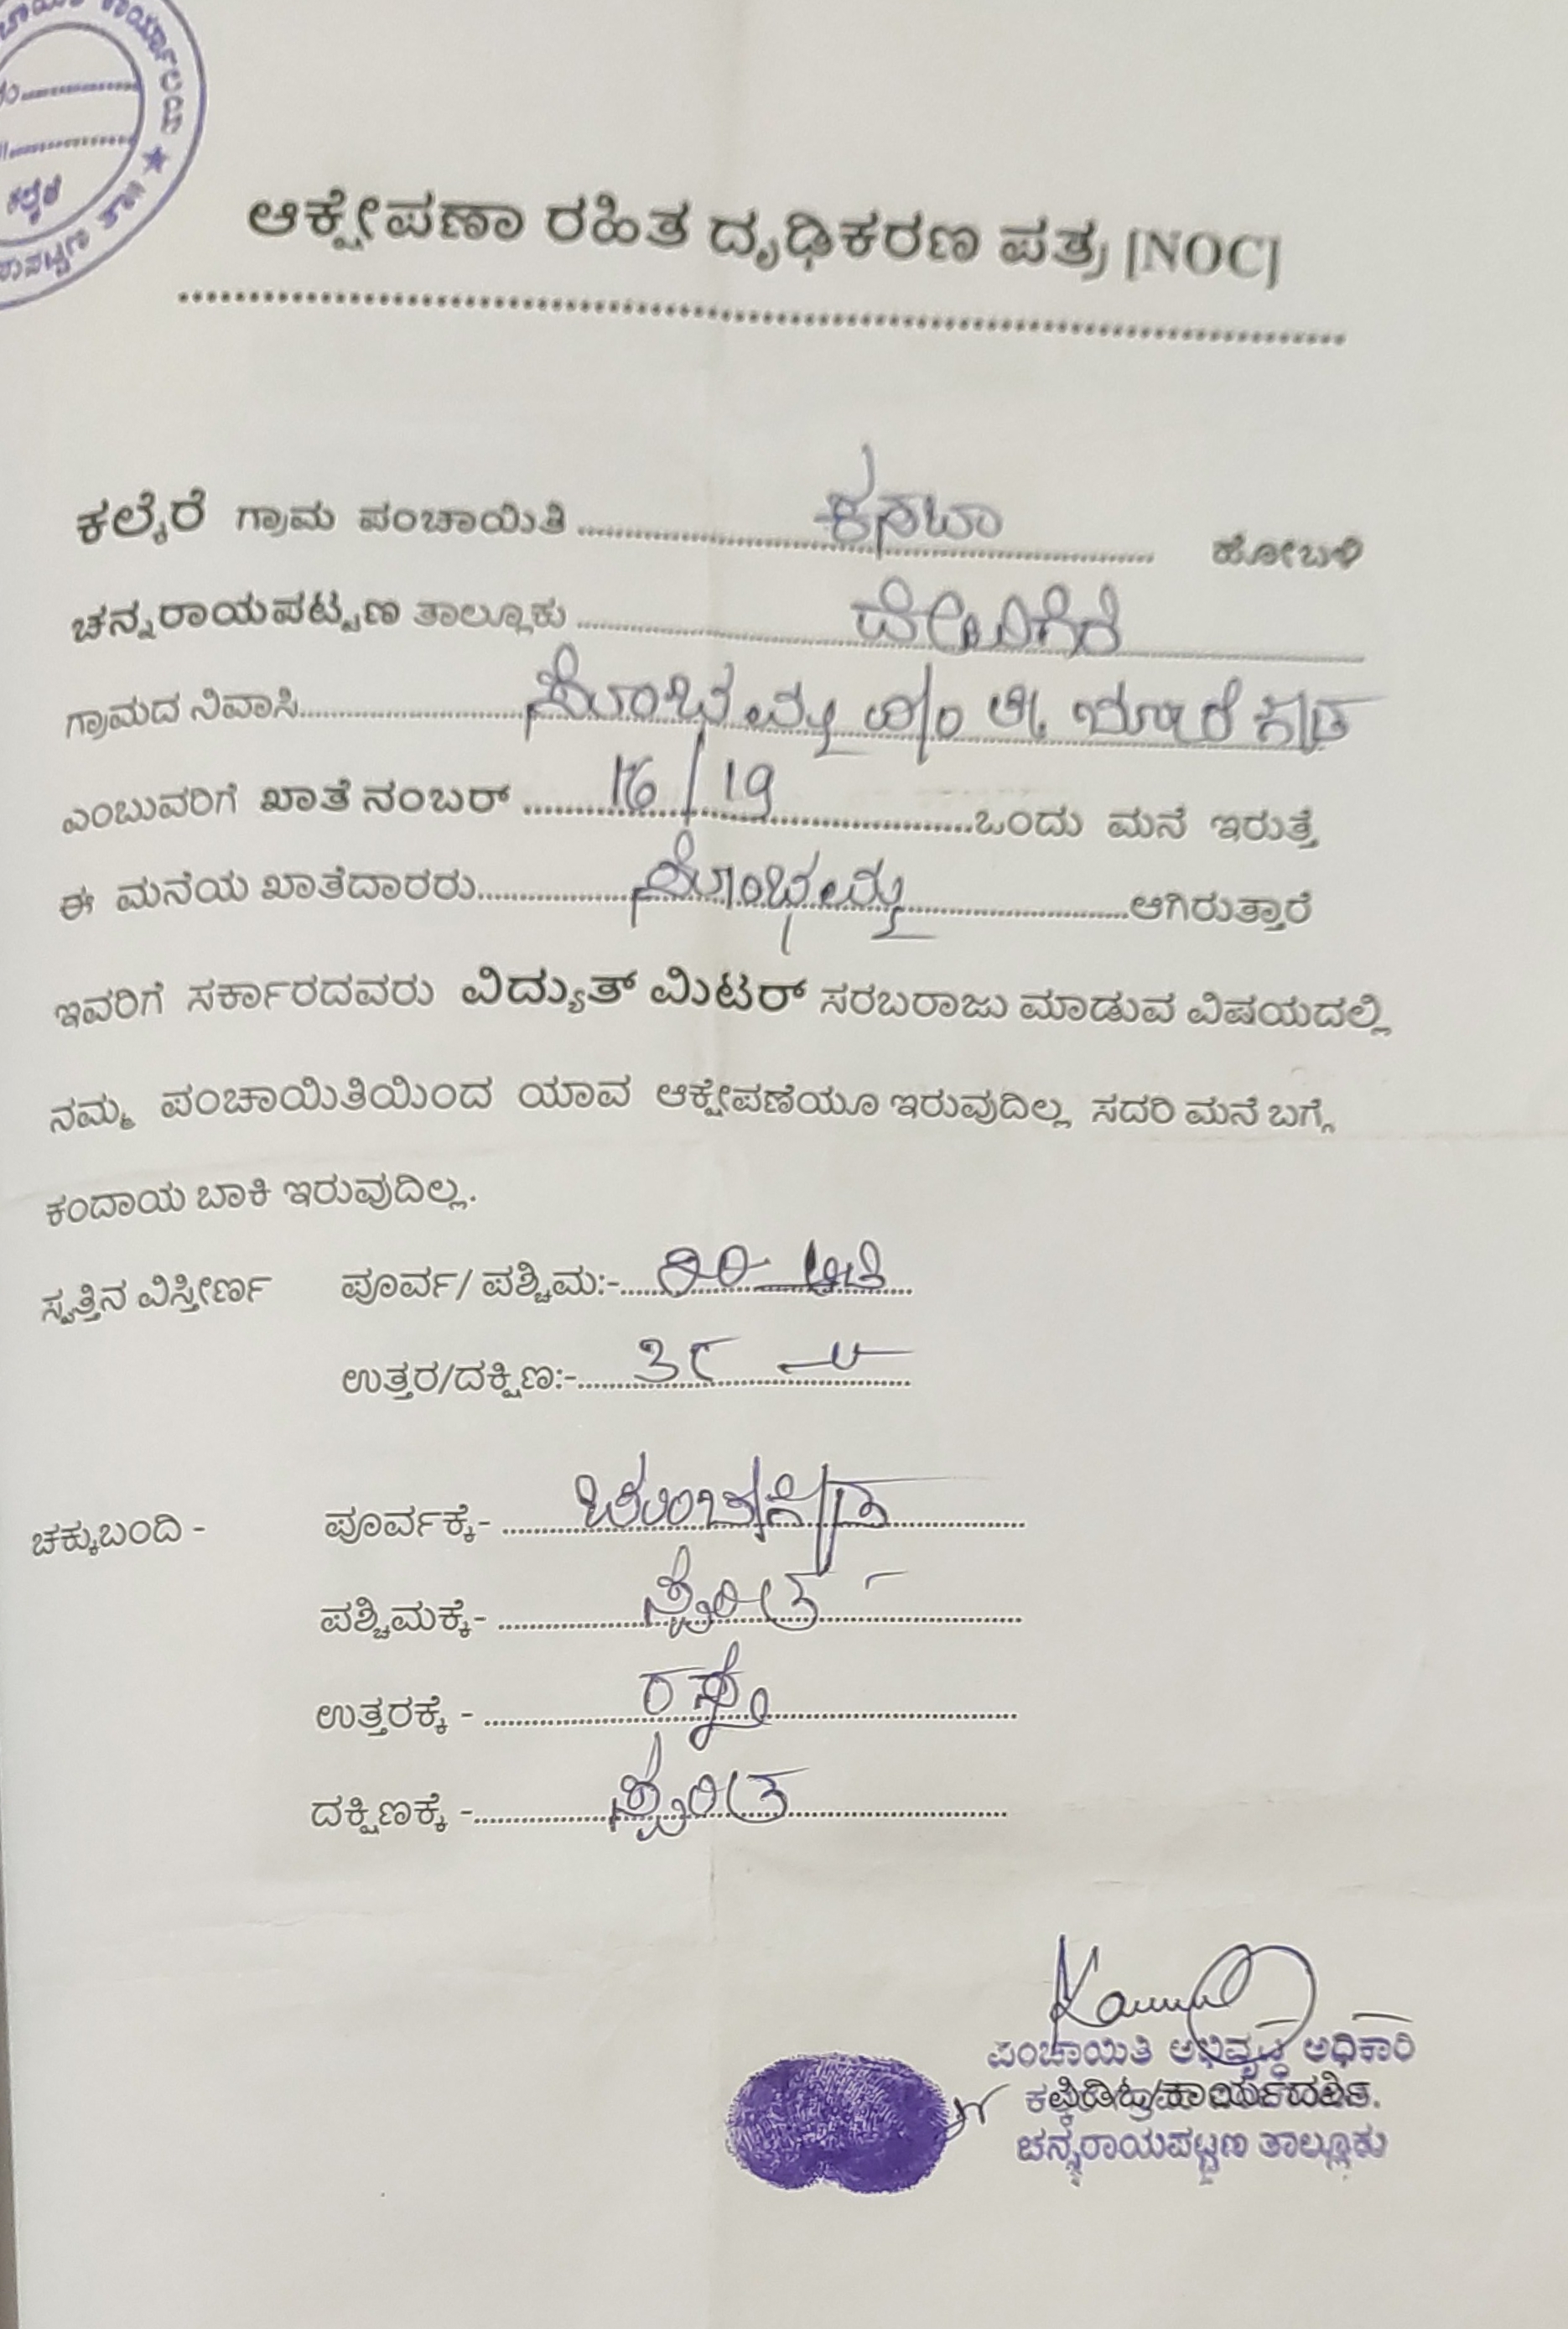 ಕಲ್ಕೆರೆ
ಆಕ್ಷೇಪಣಾ ರಹಿತ ದೃಢಿಕರಣ ಪತ್ರ [NOC]
ಕಲ್ಕೆರೆ ಗ್ರಾಮ ಪಂಚಾಯಿತಿ ಕಸಬಾ ಹೋಬಳಿ
ಚನ್ನರಾಯಪಟ್ಟಣ ತಾಲ್ಲೂಕು
ಗ್ರಾಮದ ನಿವಾಸಿ
ಎಂಬುವರಿಗೆ ಖಾತೆ ನಂಬರ್ 16/19 ಒಂದು ಮನೆ ಇರುತ್ತೆ
ಈ ಮನೆಯ ಖಾತೆದಾರರು ಆಗಿರುತ್ತಾರೆ
ಇವರಿಗೆ ಸರ್ಕಾರದವರು ವಿದ್ಯುತ್ ಮಿಟರ್ ಸರಬರಾಜು ಮಾಡುವ ವಿಷಯದಲ್ಲಿ
ನಮ್ಮ ಪಂಚಾಯಿತಿಯಿಂದ ಯಾವ ಆಕ್ಷೇಪಣೆಯೂ ಇರುವುದಿಲ್ಲ ಸದರಿ ಮನೆ ಬಗ್ಗೆ
ಕಂದಾಯ ಬಾಕಿ ಇರುವುದಿಲ್ಲ.
ಸ್ವತ್ತಿನ ವಿಸ್ತೀರ್ಣ ಪೂರ್ವ/ ಪಶ್ಚಿಮ:- ಅಡಿ
ಉತ್ತರ/ದಕ್ಷಿಣ:-
ಚಕ್ಕುಬಂದಿ - ಪೂರ್ವಕ್ಕೆ-
ಪಶ್ಚಿಮಕ್ಕೆ- ಸ್ವಂತ
ಉತ್ತರಕ್ಕೆ - ರಸ್ತೆ
ದಕ್ಷಿಣಕ್ಕೆ - ಸ್ವಂತ
ಪಂಚಾಯಿತಿ ಅಭಿವೃದ್ಧಿ ಅಧಿಕಾರಿ
ಪಿಡಿಓ/ಕಾರ್ಯದರ್ಶಿ.
ಚನ್ನರಾಯಪಟ್ಟಣ ತಾಲ್ಲೂಕು